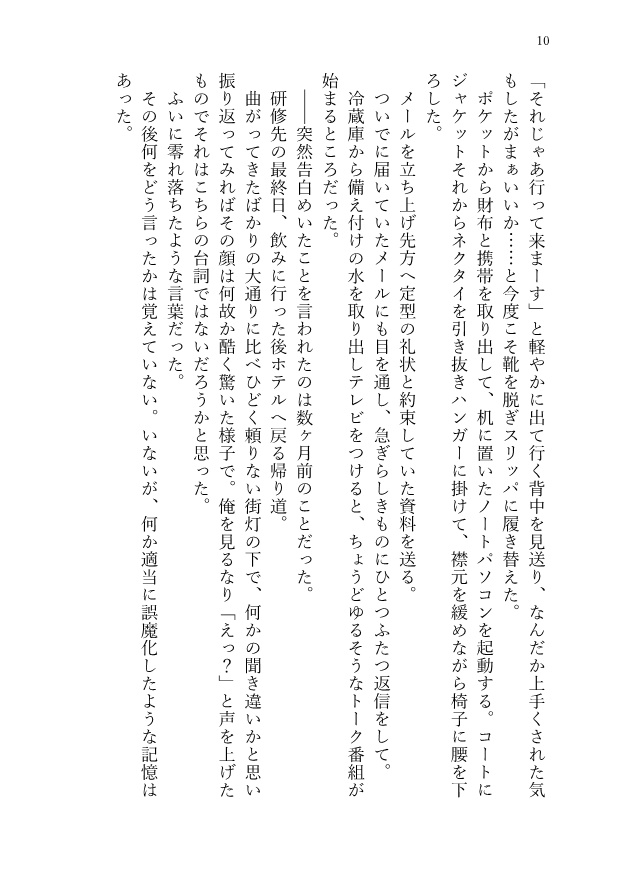 10
「それじゃあ行って来まーす」と軽やかに出て行く背中を見送り、なんだか上手くされた気
もしたがまぁいいか……と今度こそ靴を脱ぎスリッパに履き替えた。
ポケットから財布と携帯を取り出して、机に置いたノートパソコンを起動する。コートに
ジャケットそれからネクタイを引き抜きハンガーに掛けて、襟元を緩めながら椅子に腰を下
ろした。
メールを立ち上げ先方へ定型の礼状と約束していた資料を送る。
ついでに届いていたメールにも目を通し、急ぎらしきものにひとつふたつ返信をして。
冷蔵庫から備え付けの水を取り出しテレビをつけると、ちょうどゆるそうなトーク番組が
始まるところだった。
――突然告白めいたことを言われたのは数ヶ月前のことだった。
研修先の最終日、飲みに行った後ホテルへ戻る帰り道。
曲がってきたばかりの大通りに比べひどく頼りない街灯の下で、何かの聞き違いかと思い
振り返ってみればその顔は何故か酷く驚いた様子で。俺を見るなり「えっ？」と声を上げた
ものでそれはこちらの台詞ではないだろうかと思った。
ふいに零れ落ちたような言葉だった。
その後何をどう言ったかは覚えていない。いないが、何か適当に誤魔化したような記憶は
あった。